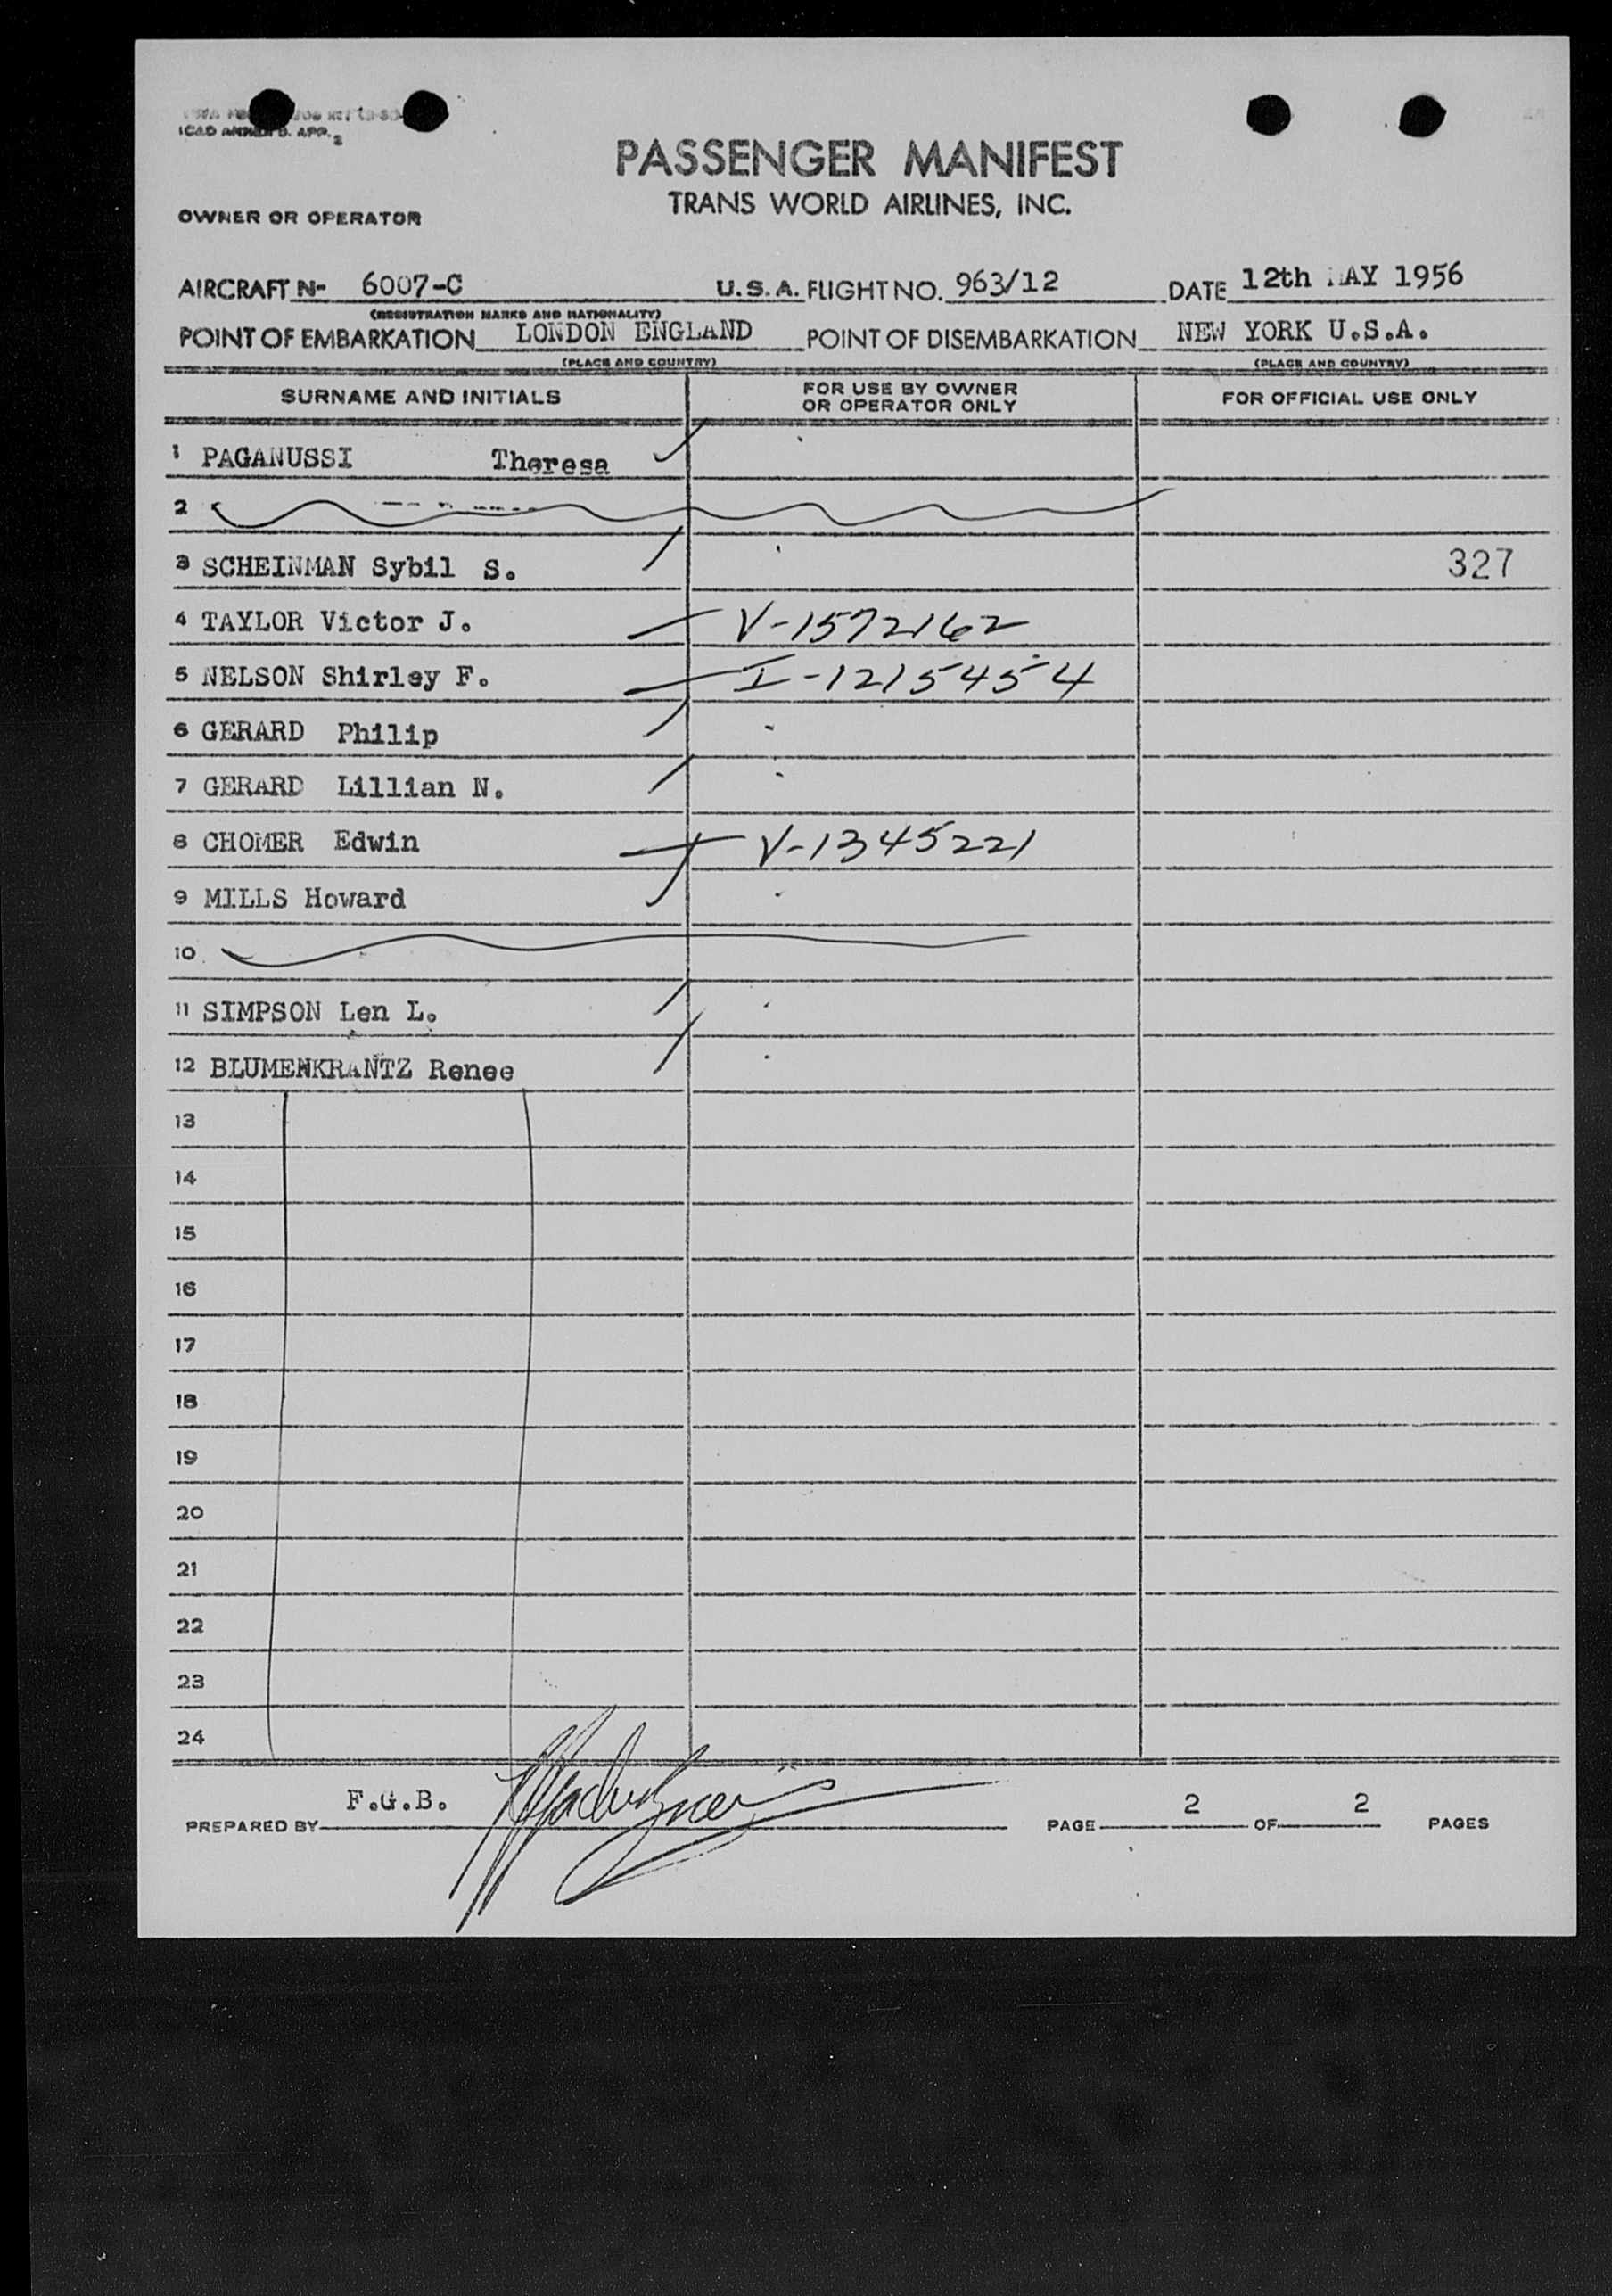 ICAO ANNEX 9. APP. 2
PASSENGER MANIFEST
TRANS WORLD AIRLINES, INC.
OWNER OR OPERATOR
AIRCRAFT N- 6007-C U.S.A. FLIGHT NO. 963/12 DATE 12th MAY 1956
(REGISTRATION MARKS AND NATIONALITY)
POINT OF EMBARKATION LONDON ENGLAND POINT OF DISEMBARKATION NEW YORK U.S.A.
(PLACE AND COUNTRY) (PLACE AND COUNTRY)
SURNAME AND INITIALS FOR USE BY OWNER OR OPERATOR ONLY FOR OFFICIAL USE ONLY
1 PAGANUSSI Theresa
2
3 SCHEINMAN Sybil S. 327
4 TAYLOR Victor J. V-1572162
5 NELSON Shirley F. I-1215454
6 GERARD Philip
7 GERARD Lillian N.
8 CHOMER Edwin V-1345221
9 MILLS Howard
10
11 SIMPSON Len L.
12 BLUMENKRANTZ Renee
13
14
15
16
17
18
19
20
21
22
23
24
PREPARED BY F.G.B. PAGE 2 OF 2 PAGES